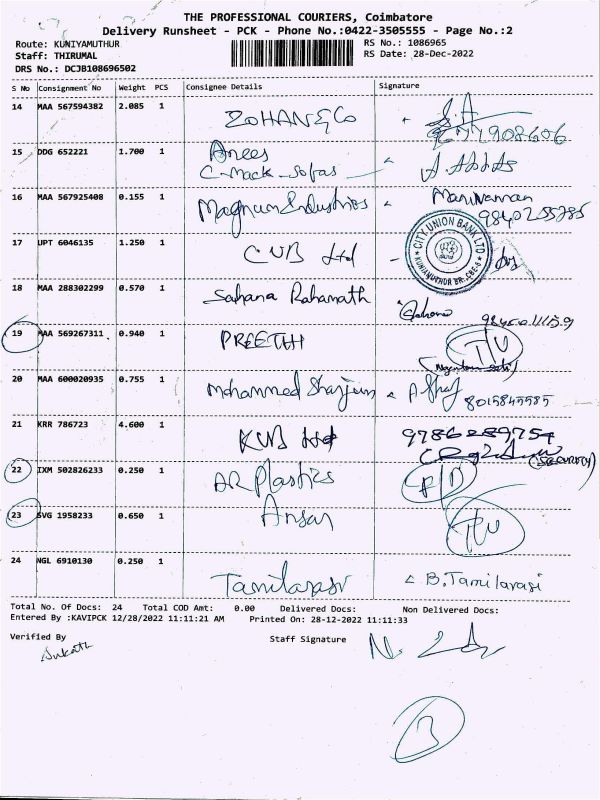 THE PROFESSIONAL COURIERS, Coimbatore
Delivery Runsheet - PCK - Phone No.:0422-3505555 - Page No.:2
Route: KUNIYAMUTHUR
RS No.: 1086965
Staff: THIRUMAL
RS Date: 28-Dec-2022
DRS No.: DCJB108696502
S No Consignment No Weight PCS Consignee Details Signature
14 MAA 567594382 2.085 1 ZOHAN & Co
15 DDG 652221 1.700 1 Anees
C-Mack-Sofas
16 MAA 567925408 0.155 1 Magnum Industries
9840255785
17 UPT 6046135 1.250 1 CUB Ltd
CITY UNION BANK LTD
KUNIAMUTHUR BR., CBE-8
18 MAA 288302299 0.570 1 Sahana Rahamath
19 MAA 569267311 0.940 1 PREETHI
20 MAA 600020935 0.755 1 Mohammed 8015845585
21 KRR 786723 4.600 1 KVB Ltd 9786289754
(SECURITY)
22 IXM 502826233 0.250 1 AR Plastics
23 SVG 1958233 0.650 1 Ansar
24 NGL 6910130 0.250 1 Tamilarasi B. Tamilarasi
Total No. Of Docs: 24 Total COD Amt: 0.00 Delivered Docs: Non Delivered Docs:
Entered By :KAVIPCK 12/28/2022 11:11:21 AM Printed On: 28-12-2022 11:11:33
Verified By Staff Signature